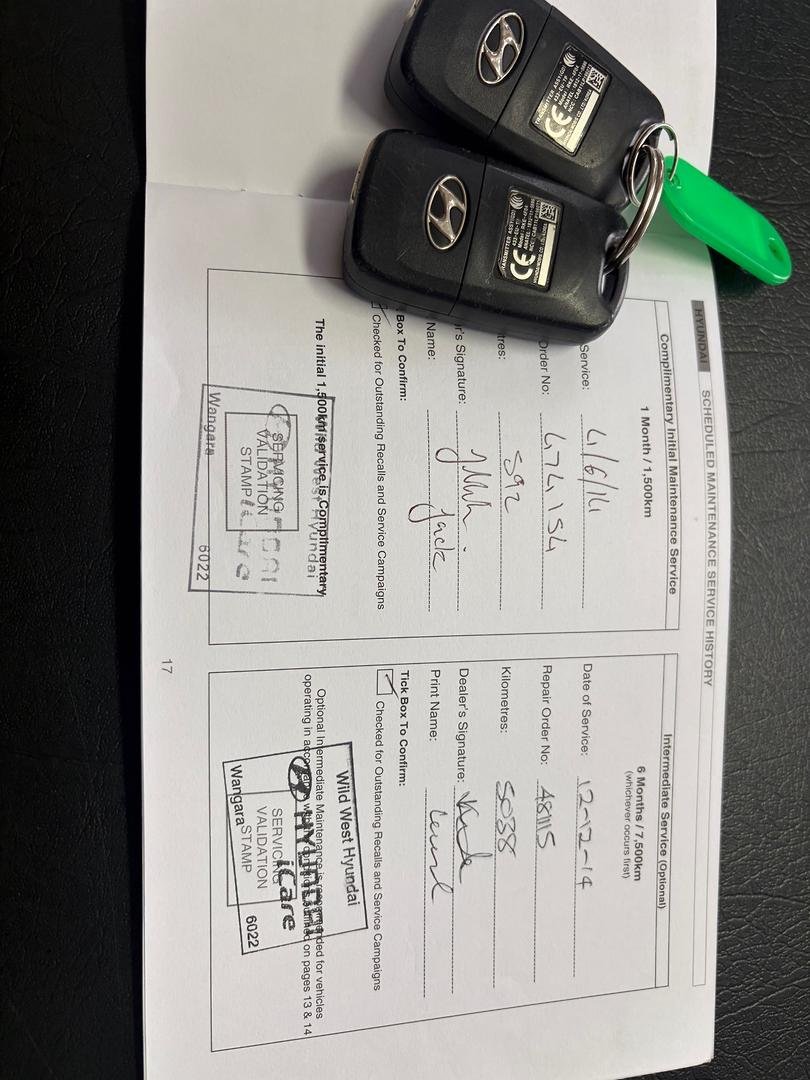 HYUNDAI SCHEDULED MAINTENANCE SERVICE HISTORY
Complimentary Initial Maintenance Service
1 Month / 1,500km
Service: 4/6/14
Order No: 474154
tres: 592
r's Signature:
Name: Jack
Box To Confirm:
Checked for Outstanding Recalls and Service Campaigns
The initial 1,500km service is Complimentary
West Hyundai
SERVICING
VALIDATION
STAMP
Wangara
6022
Intermediate Service (Optional)
6 Months / 7,500km
(whichever occurs first)
Date of Service: 12-12-14
Repair Order No: 48115
Kilometres: 5038
Dealer's Signature:
Print Name:
Tick Box To Confirm:
Checked for Outstanding Recalls and Service Campaigns
Optional Intermediate Maintenance is recommended for vehicles
operating in on pages 13 & 14
Wild West Hyundai
HYUNDAI
iCare
SERVICING
VALIDATION
STAMP
Wangara
6022
17
CE
CE